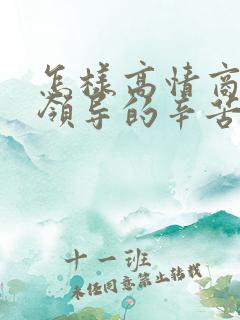 怎样高情商
领导的辛苦
十一班
未经同意禁止转载